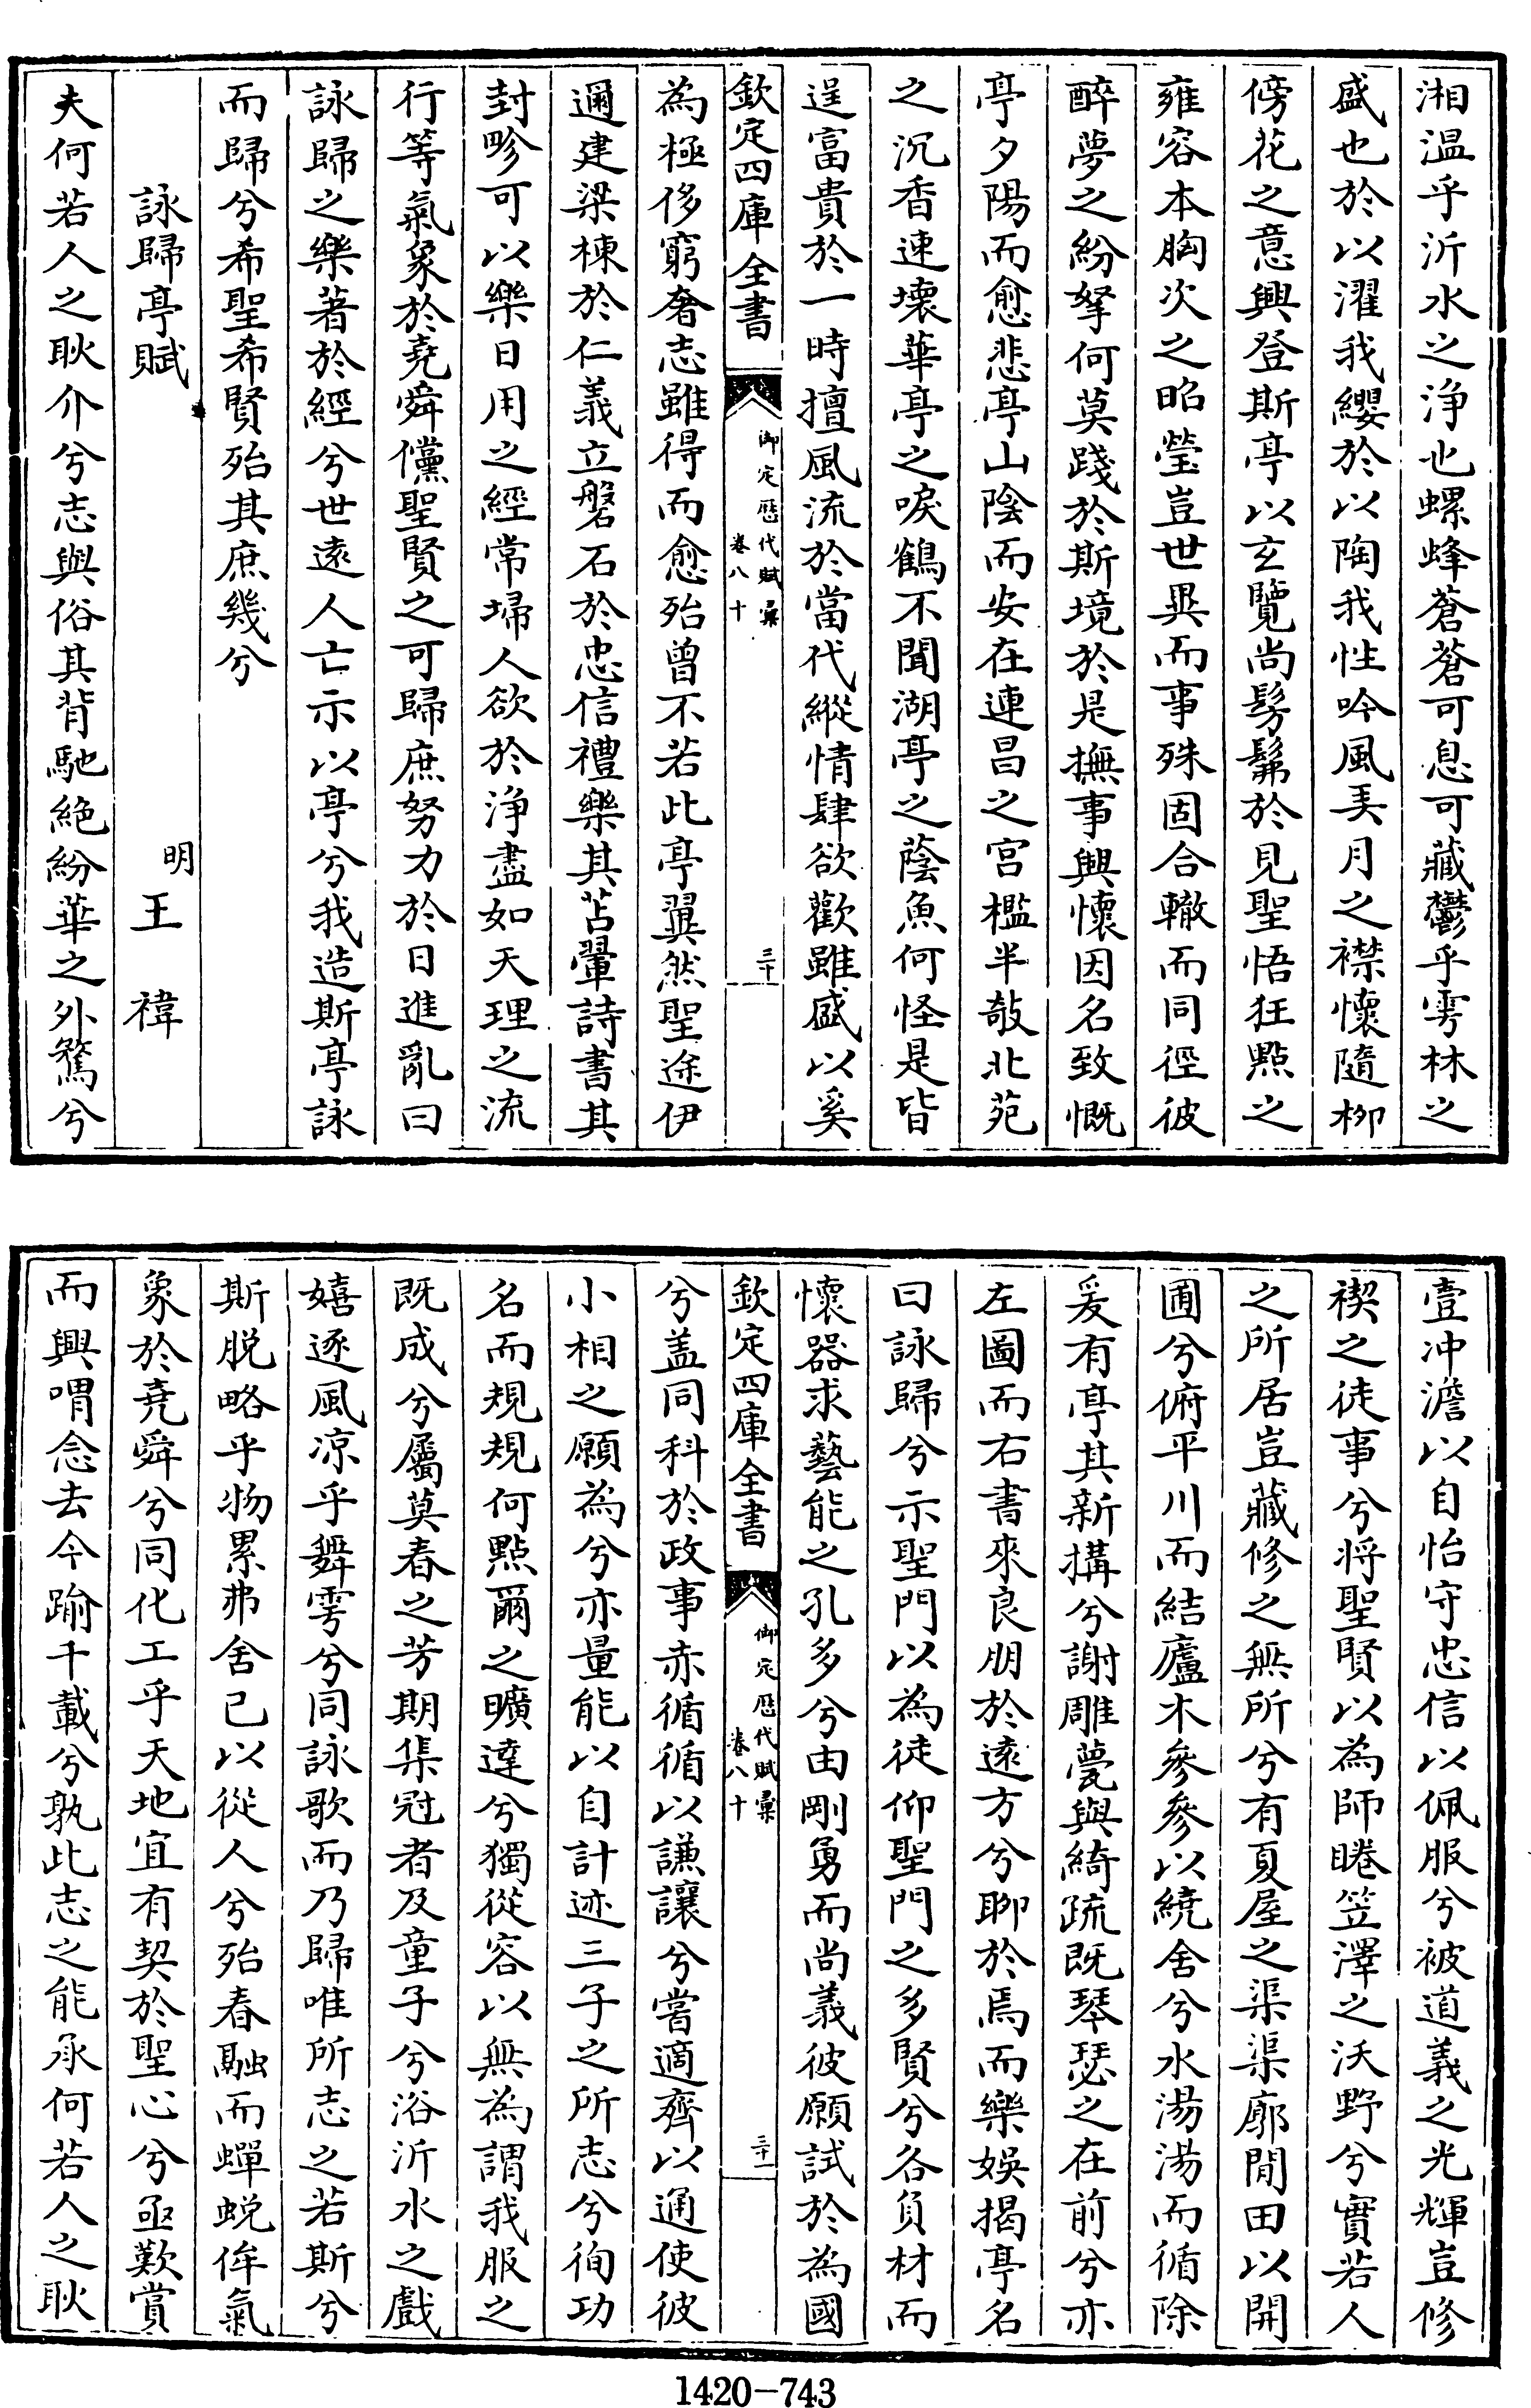 湘温乎沂水之浄也螺蜂蒼蒼可息可藏鬱乎雩林之
盛也於以濯我纓於以陶我性吟風弄月之襟懷隨柳
傍花之意興登斯亭以玄覽尚髣髴於見聖悟狂點之
雍容本胸次之昭瑩豈世異而事殊固合轍而同徑彼
醉夢之紛拏何莫踐於斯境於是撫事興懷因名致慨
亭夕陽而愈悲亭山陰而安在連昌之宫檻半敧北苑
之沉香速壊華亭之唳鶴不聞湖亭之蔭魚何怪是皆
逞富貴於一時擅風流於當代縱情肆欲歡雖盛以奚
欽定四庫全書
御定歷代賦彙
卷八十
三十
為極侈窮奢志雖得而愈殆曽不若此亭翼然聖途伊
邇建梁棟於仁義立磐石於忠信禮樂其苫翬詩書其
封畛可以樂日用之經常埽人欲於浄盡如天理之流
行等氣象於堯舜儻聖賢之可歸庶努力於日進亂曰
詠歸之樂著於經兮世逺人亡示以亭兮我造斯亭詠
而歸兮希聖希賢殆其庶幾兮
詠歸亭賦
明
王禕
夫何若人之耿介兮志與俗其背馳絶紛華之外騖兮
壹冲澹以自怡守忠信以佩服兮被道義之光輝豈修
禊之徒事兮将聖賢以為師睠笠澤之沃野兮實若人
之所居豈藏修之無所兮有夏屋之渠渠廓閒田以開
圃兮俯平川而結廬木參參以繞舍兮水湯湯而循除
爰有亭其新搆兮謝雕甍與綺疏既琴瑟之在前兮亦
左圖而右書來良朋於逺方兮聊於焉而樂娯揭亭名
曰詠歸兮示聖門以為徒仰聖門之多賢兮各負材而
懷器求藝能之孔多兮由剛勇而尚義彼願試於為國
欽定四庫全書
御定歷代賦彙
卷八十
三十一
兮盖同科於政事赤循循以謙讓兮嘗適齊以通使彼
小相之願為兮亦量能以自計迹三子之所志兮徇功
名而規規何點爾之曠達兮獨從容以無為謂我服之
既成兮屬莫春之芳期集冠者及童子兮浴沂水之戲
嬉逐風凉乎舞雩兮同詠歌而乃歸唯所志之若斯兮
斯脱略乎物累弗舍已以從人兮殆春融而蟬蜕侔氣
象於堯舜兮同化工乎天地宜有契於聖心兮亟歎賞
而興喟念去今踰千載兮孰此志之能承何若人之耿
1420-743